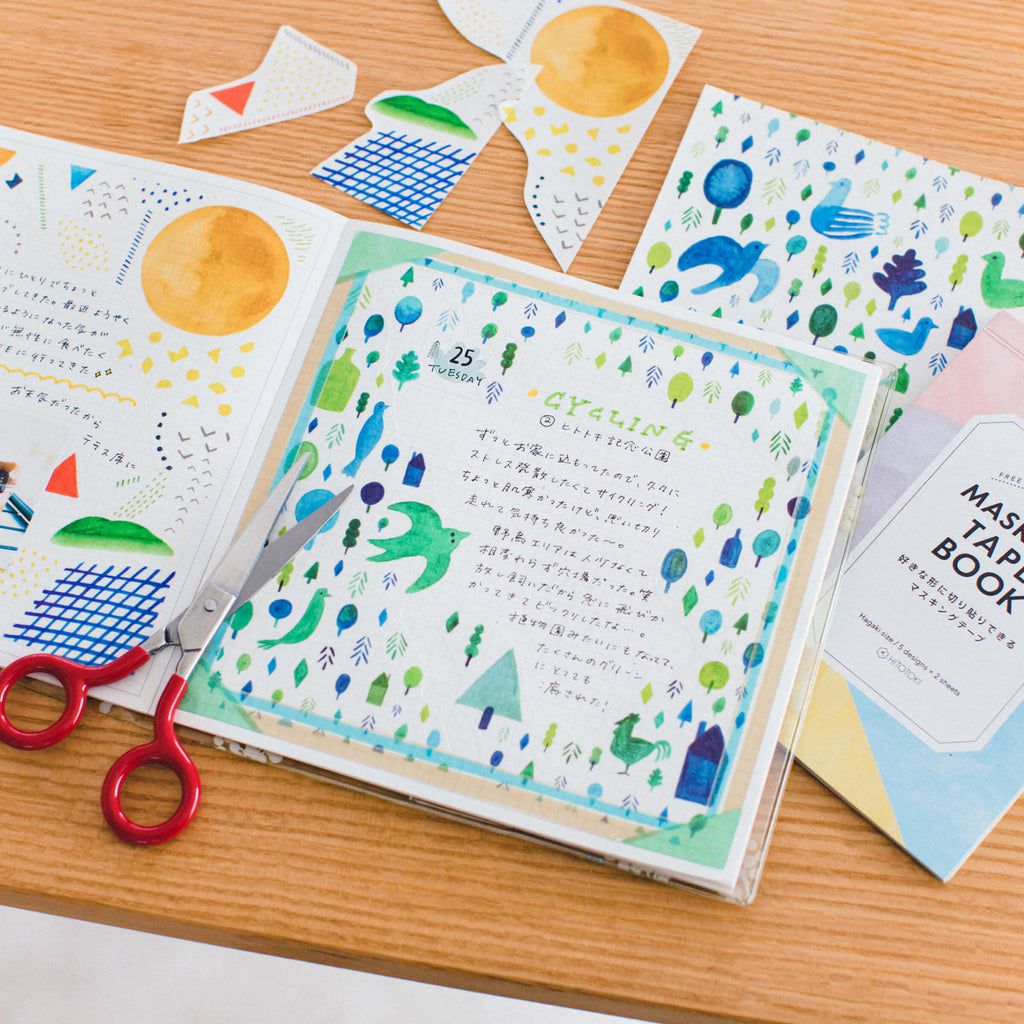 にひとりでちょっと
してきた。最近ようやく
るようになった気が
無性に食べたく
に行ってきた
お天気だったから
テラス席に
25
TUESDAY
CYCLING
@ ヒトトキ記念公園
ずっとお家に込もってたので、久々に
ストレス発散したくてサイクリング!
ちょっと肌寒かったけど、思い切り
走れて気持ち良かった〜。
野鳥エリアは人少なくて
相変わらず穴場だった。笑
放し飼いだから急に飛びか
かってきてビックリしたな…。
植物園みたいにもなってて、
たくさんのグリーン
にとっても
癒された!
FREE
MASK
TAPE
BOOK
好きな形に切り貼りできる
マスキングテープ
Hagaki size / 5 designs × 2 sheets
HITOTOKI